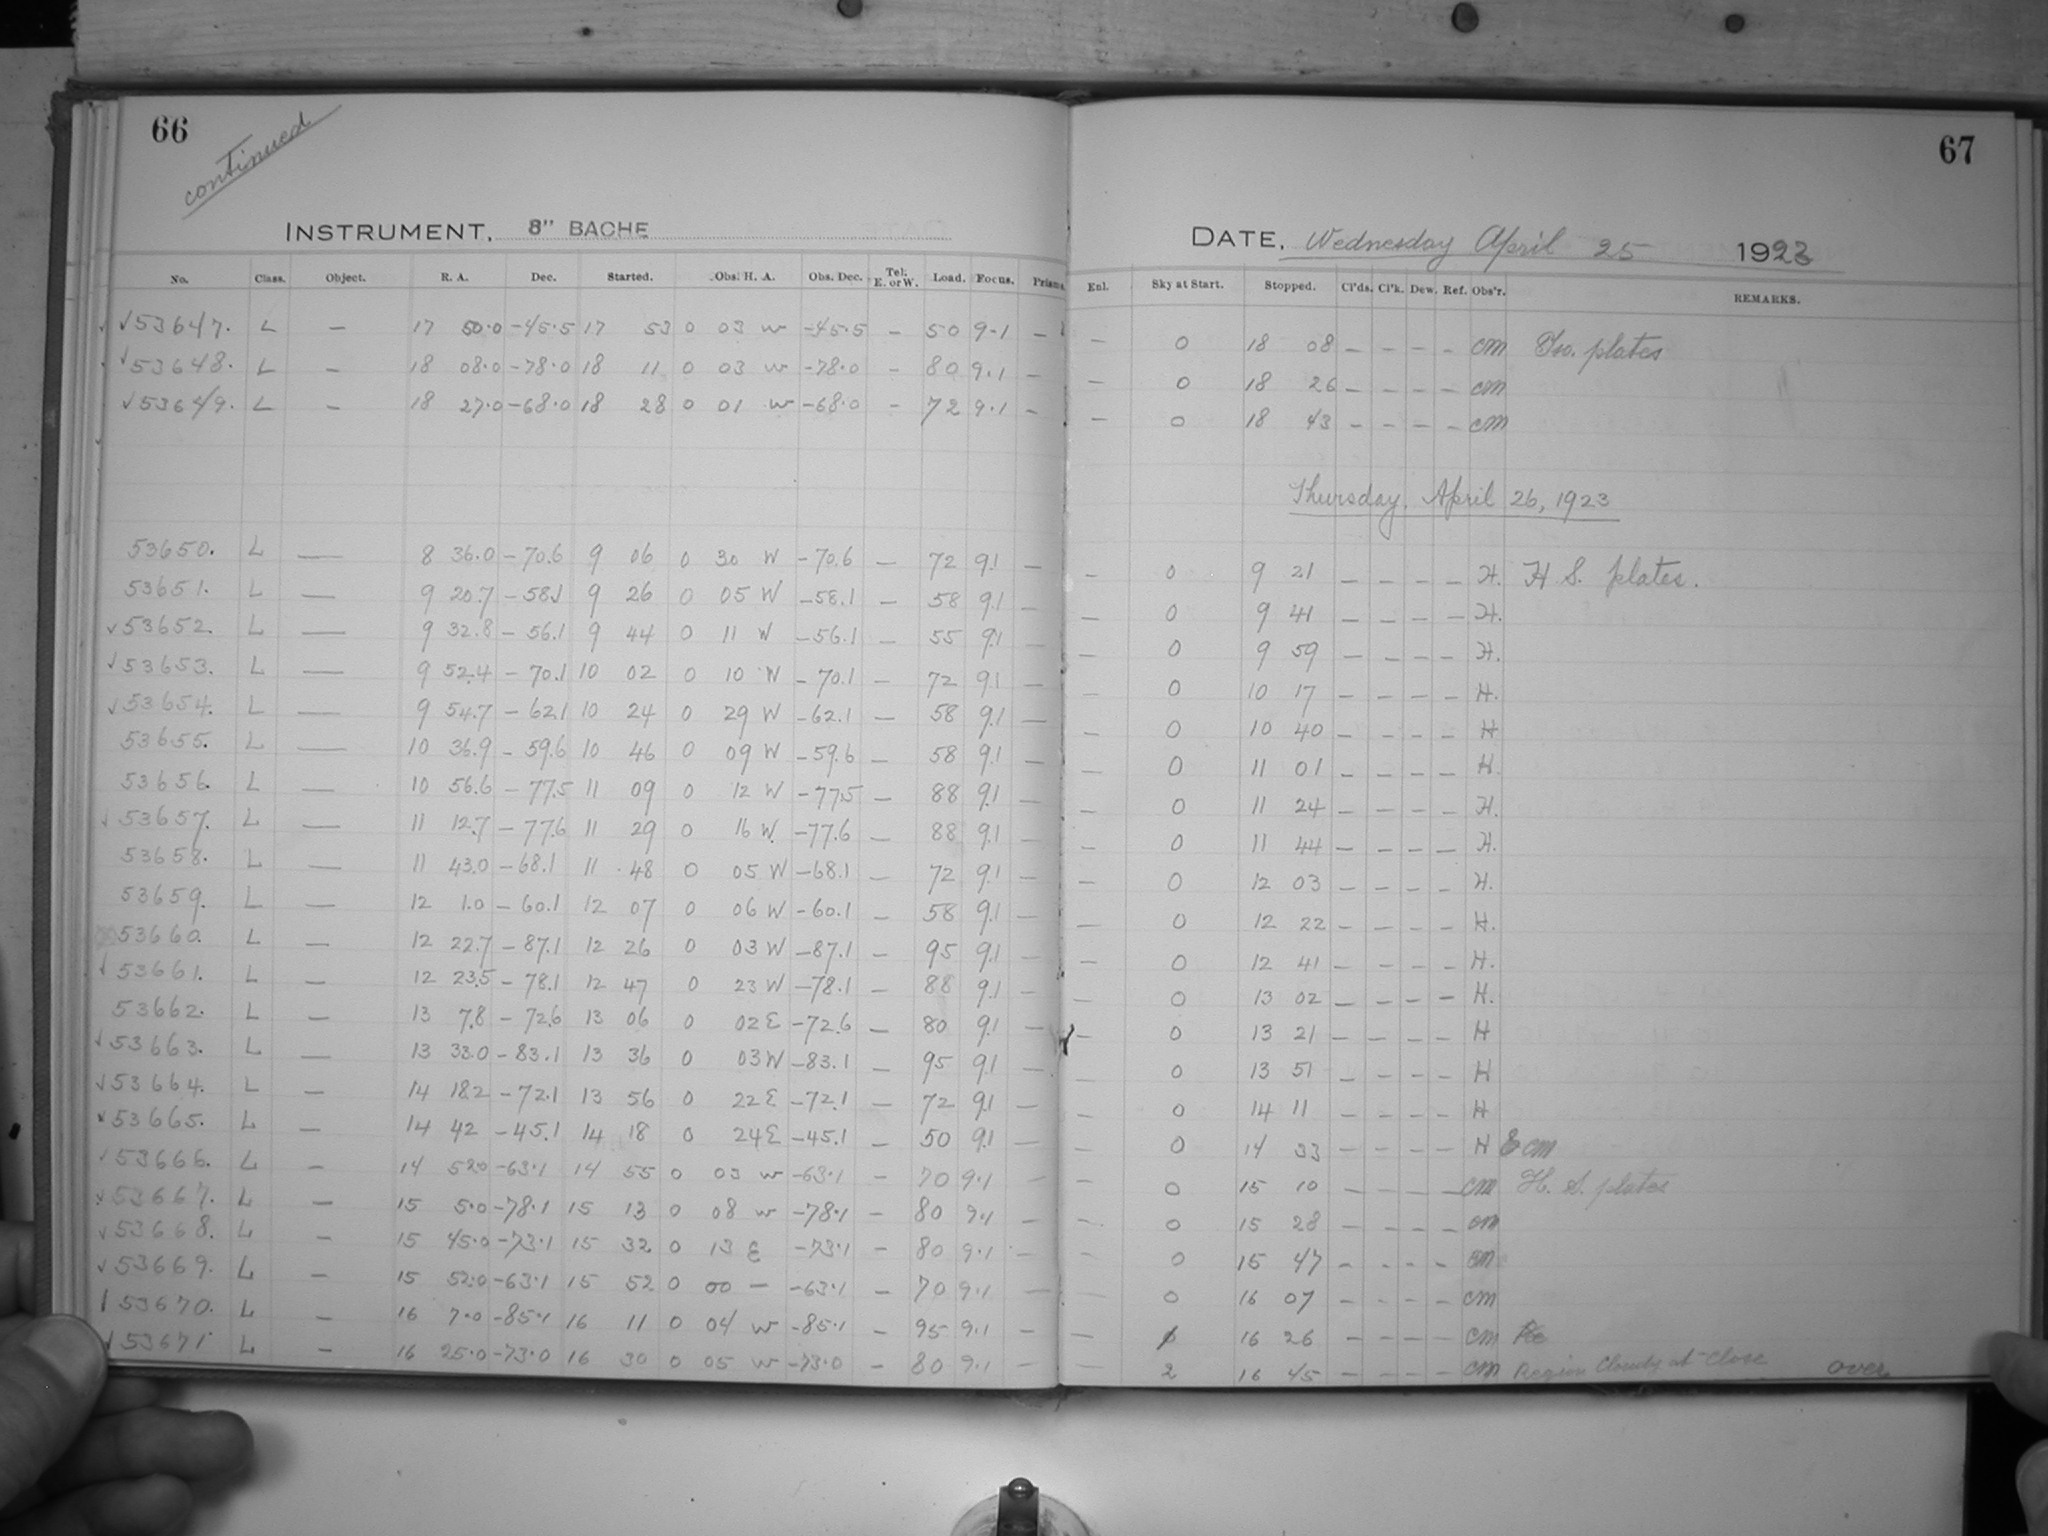 66
continued
INSTRUMENT, 8" BACHE
No. Class. Object. R. A. Dec. Started. Obs. H. A. Obs. Dec. Tel. E. or W. Load. Focus. Prism.
√53647. L — 17 50.0 -45.5 17 53 0 03 W -45.5 - 50 9.1 —
√53648. L — 18 08.0 -78.0 18 11 0 03 W -78.0 - 80 9.1 —
√53649. L — 18 27.0 -68.0 18 28 0 01 W -68.0 - 72 9.1 —
53650. L — 8 36.0 -70.6 9 06 0 30 W -70.6 — 72 9.1 —
53651. L — 9 20.7 -58.1 9 26 0 05 W -58.1 — 58 9.1 —
√53652. L — 9 32.8 -56.1 9 44 0 11 W -56.1 — 55 9.1 —
√53653. L — 9 52.4 -70.1 10 02 0 10 W -70.1 — 72 9.1 —
√53654. L — 9 54.7 -62.1 10 24 0 29 W -62.1 — 58 9.1 —
53655. L — 10 36.9 -59.6 10 46 0 09 W -59.6 — 58 9.1 —
53656. L — 10 56.6 -77.5 11 09 0 12 W -77.5 — 88 9.1 —
√53657. L — 11 12.7 -77.6 11 29 0 16 W -77.6 — 88 9.1 —
53658. L — 11 43.0 -68.1 11 48 0 05 W -68.1 — 72 9.1 —
53659. L — 12 1.0 -60.1 12 07 0 06 W -60.1 — 58 9.1 —
53660. L — 12 22.7 -87.1 12 26 0 03 W -87.1 — 95 9.1 —
√53661. L — 12 23.5 -78.1 12 47 0 23 W -78.1 — 88 9.1 —
53662. L — 13 7.8 -72.6 13 06 0 02 E -72.6 — 80 9.1 —
√53663. L — 13 33.0 -83.1 13 36 0 03 W -83.1 — 95 9.1 —
√53664. L — 14 18.2 -72.1 13 56 0 22 E -72.1 — 72 9.1 —
√53665. L — 14 42 -45.1 14 18 0 24 E -45.1 — 50 9.1 —
√53666. L — 14 52.0 -63.1 14 55 0 03 W -63.1 — 70 9.1 —
√53667. L — 15 5.0 -78.1 15 13 0 08 W -78.1 — 80 9.1 —
√53668. L — 15 45.0 -73.1 15 32 0 13 E -73.1 — 80 9.1 —
√53669. L — 15 52.0 -63.1 15 52 0 00 — -63.1 — 70 9.1 —
53670. L — 16 7.0 -85.1 16 11 0 04 W -85.1 — 95 9.1 —
√53671 L — 16 25.0 -73.0 16 30 0 05 W -73.0 — 80 9.1 —
67
DATE, Wednesday April 25 1923
Enl. Sky at Start. Stopped. Cl'ds. Cl'k. Dew. Ref. Obs'r. REMARKS.
— 0 18 08 — — — — CM Iso. plates
— 0 18 26 — — — — CM
— 0 18 43 — — — — CM
Thursday, April 26, 1923
— 0 9 21 — — — — H. H S. plates.
— 0 9 41 — — — — H.
— 0 9 59 — — — — H.
— 0 10 17 — — — — H.
— 0 10 40 — — — — H
— 0 11 01 — — — — H.
— 0 11 24 — — — — H.
— 0 11 44 — — — — H.
— 0 12 03 — — — — H.
— 0 12 22 — — — — H.
— 0 12 41 — — — — H.
— 0 13 02 — — — — H.
— 0 13 21 — — — — H
— 0 13 51 — — — — H
— 0 14 11 — — — — H
— 0 14 33 — — — — H & CM
— 0 15 10 — — — — CM H. S. plates
— 0 15 28 — — — — CM
— 0 15 47 — — — — CM
— 0 16 07 — — — — CM
— 16 26 — — — — CM
— 2 16 45 — — — — CM Region Cloudy at close over